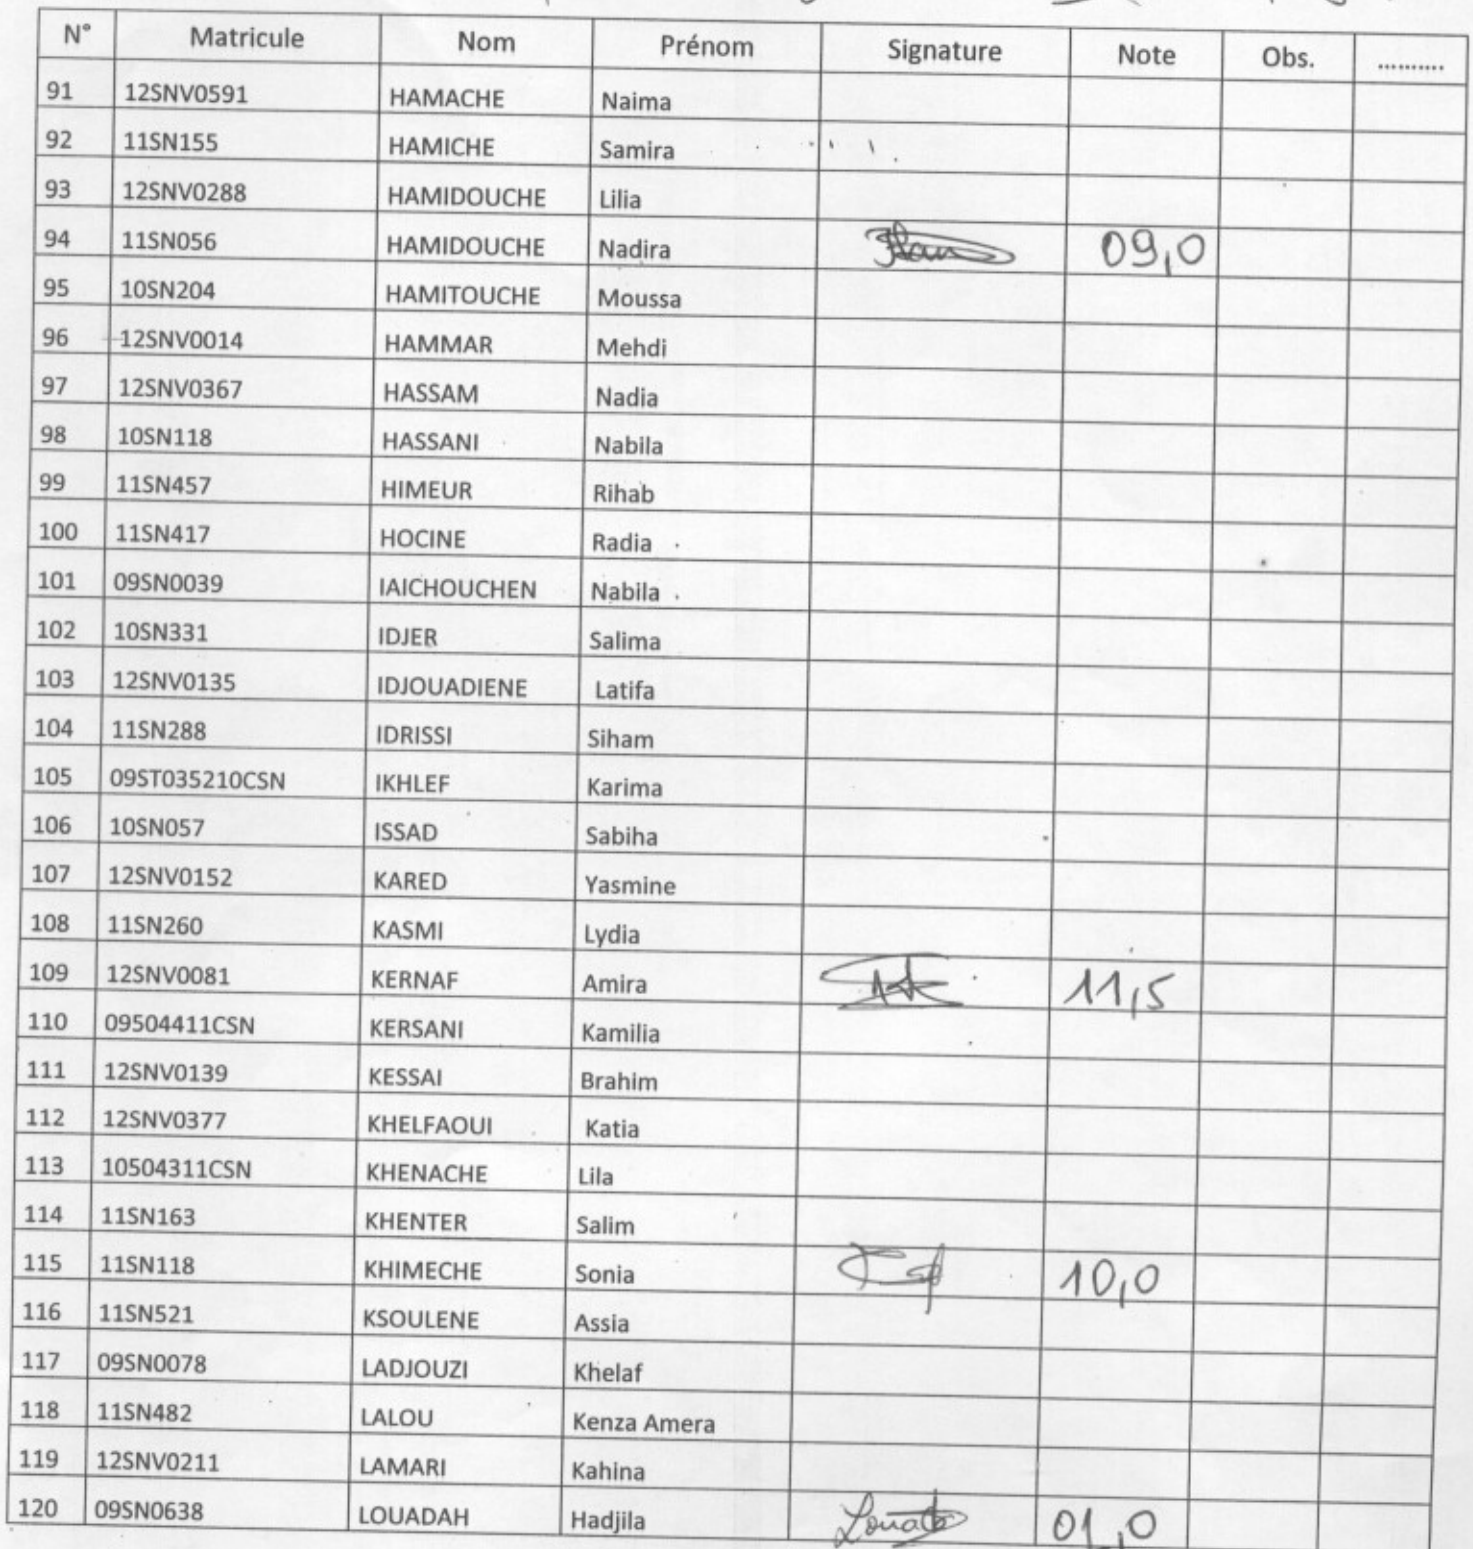 N° Matricule Nom Prénom Signature Note Obs. ..........
91 12SNV0591 HAMACHE Naima
92 11SN155 HAMICHE Samira
93 12SNV0288 HAMIDOUCHE Lilia
94 11SN056 HAMIDOUCHE Nadira 09,0
95 10SN204 HAMITOUCHE Moussa
96 12SNV0014 HAMMAR Mehdi
97 12SNV0367 HASSAM Nadia
98 10SN118 HASSANI Nabila
99 11SN457 HIMEUR Rihab
100 11SN417 HOCINE Radia
101 09SN0039 IAICHOUCHEN Nabila
102 10SN331 IDJER Salima
103 12SNV0135 IDJOUADIENE Latifa
104 11SN288 IDRISSI Siham
105 09ST035210CSN IKHLEF Karima
106 10SN057 ISSAD Sabiha
107 12SNV0152 KARED Yasmine
108 11SN260 KASMI Lydia
109 12SNV0081 KERNAF Amira 11,5
110 09504411CSN KERSANI Kamilia
111 12SNV0139 KESSAI Brahim
112 12SNV0377 KHELFAOUI Katia
113 10504311CSN KHENACHE Lila
114 11SN163 KHENTER Salim
115 11SN118 KHIMECHE Sonia 10,0
116 11SN521 KSOULENE Assia
117 09SN0078 LADJOUZI Khelaf
118 11SN482 LALOU Kenza Amera
119 12SNV0211 LAMARI Kahina
120 09SN0638 LOUADAH Hadjila 01,0